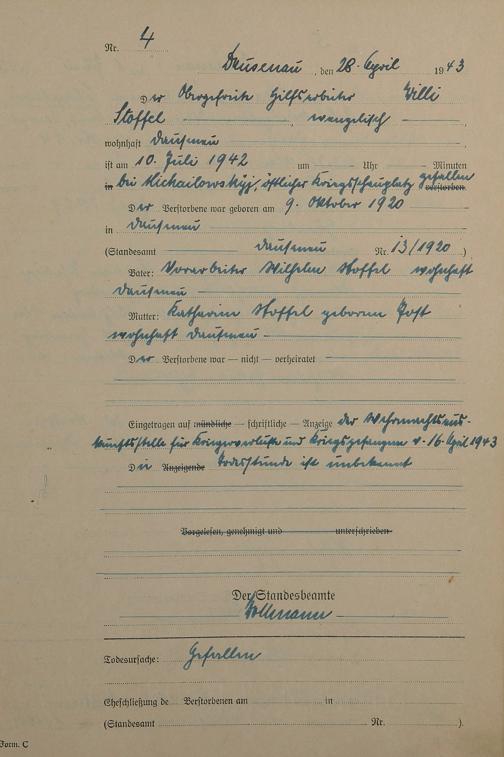 Nr. 4
Dausenau, den 28. April 1943
Der Obergefreite Hilfsarbeiter Willi
Stoffel, evangelisch
wohnhaft Dausenau
ist am 10. Juli 1942 um Uhr Minuten
in bei Michailowskyj, östlicher Kriegsschauplatz gefallen verstorben.
Der Verstorbene war geboren am 9. Oktober 1920
in Dausenau
(Standesamt Dausenau Nr. 13/1920)
Vater: Vorarbeiter Wilhelm Stoffel wohnhaft
Dausenau
Mutter: Katharina Stoffel geborene Post
wohnhaft Dausenau
Der Verstorbene war — nicht — verheiratet
Eingetragen auf mündliche — schriftliche — Anzeige der Wehrmachtsaus-
kunftsstelle für Kriegerverluste und Kriegsgefangene v. 16. April 1943
Die Anzeigende Todesstunde ist unbekannt
Vorgelesen, genehmigt und unterschrieben
Der Standesbeamte
Todesursache: Gefallen
Eheschließung de Verstorbenen am in
(Standesamt Nr. ).
Form. C